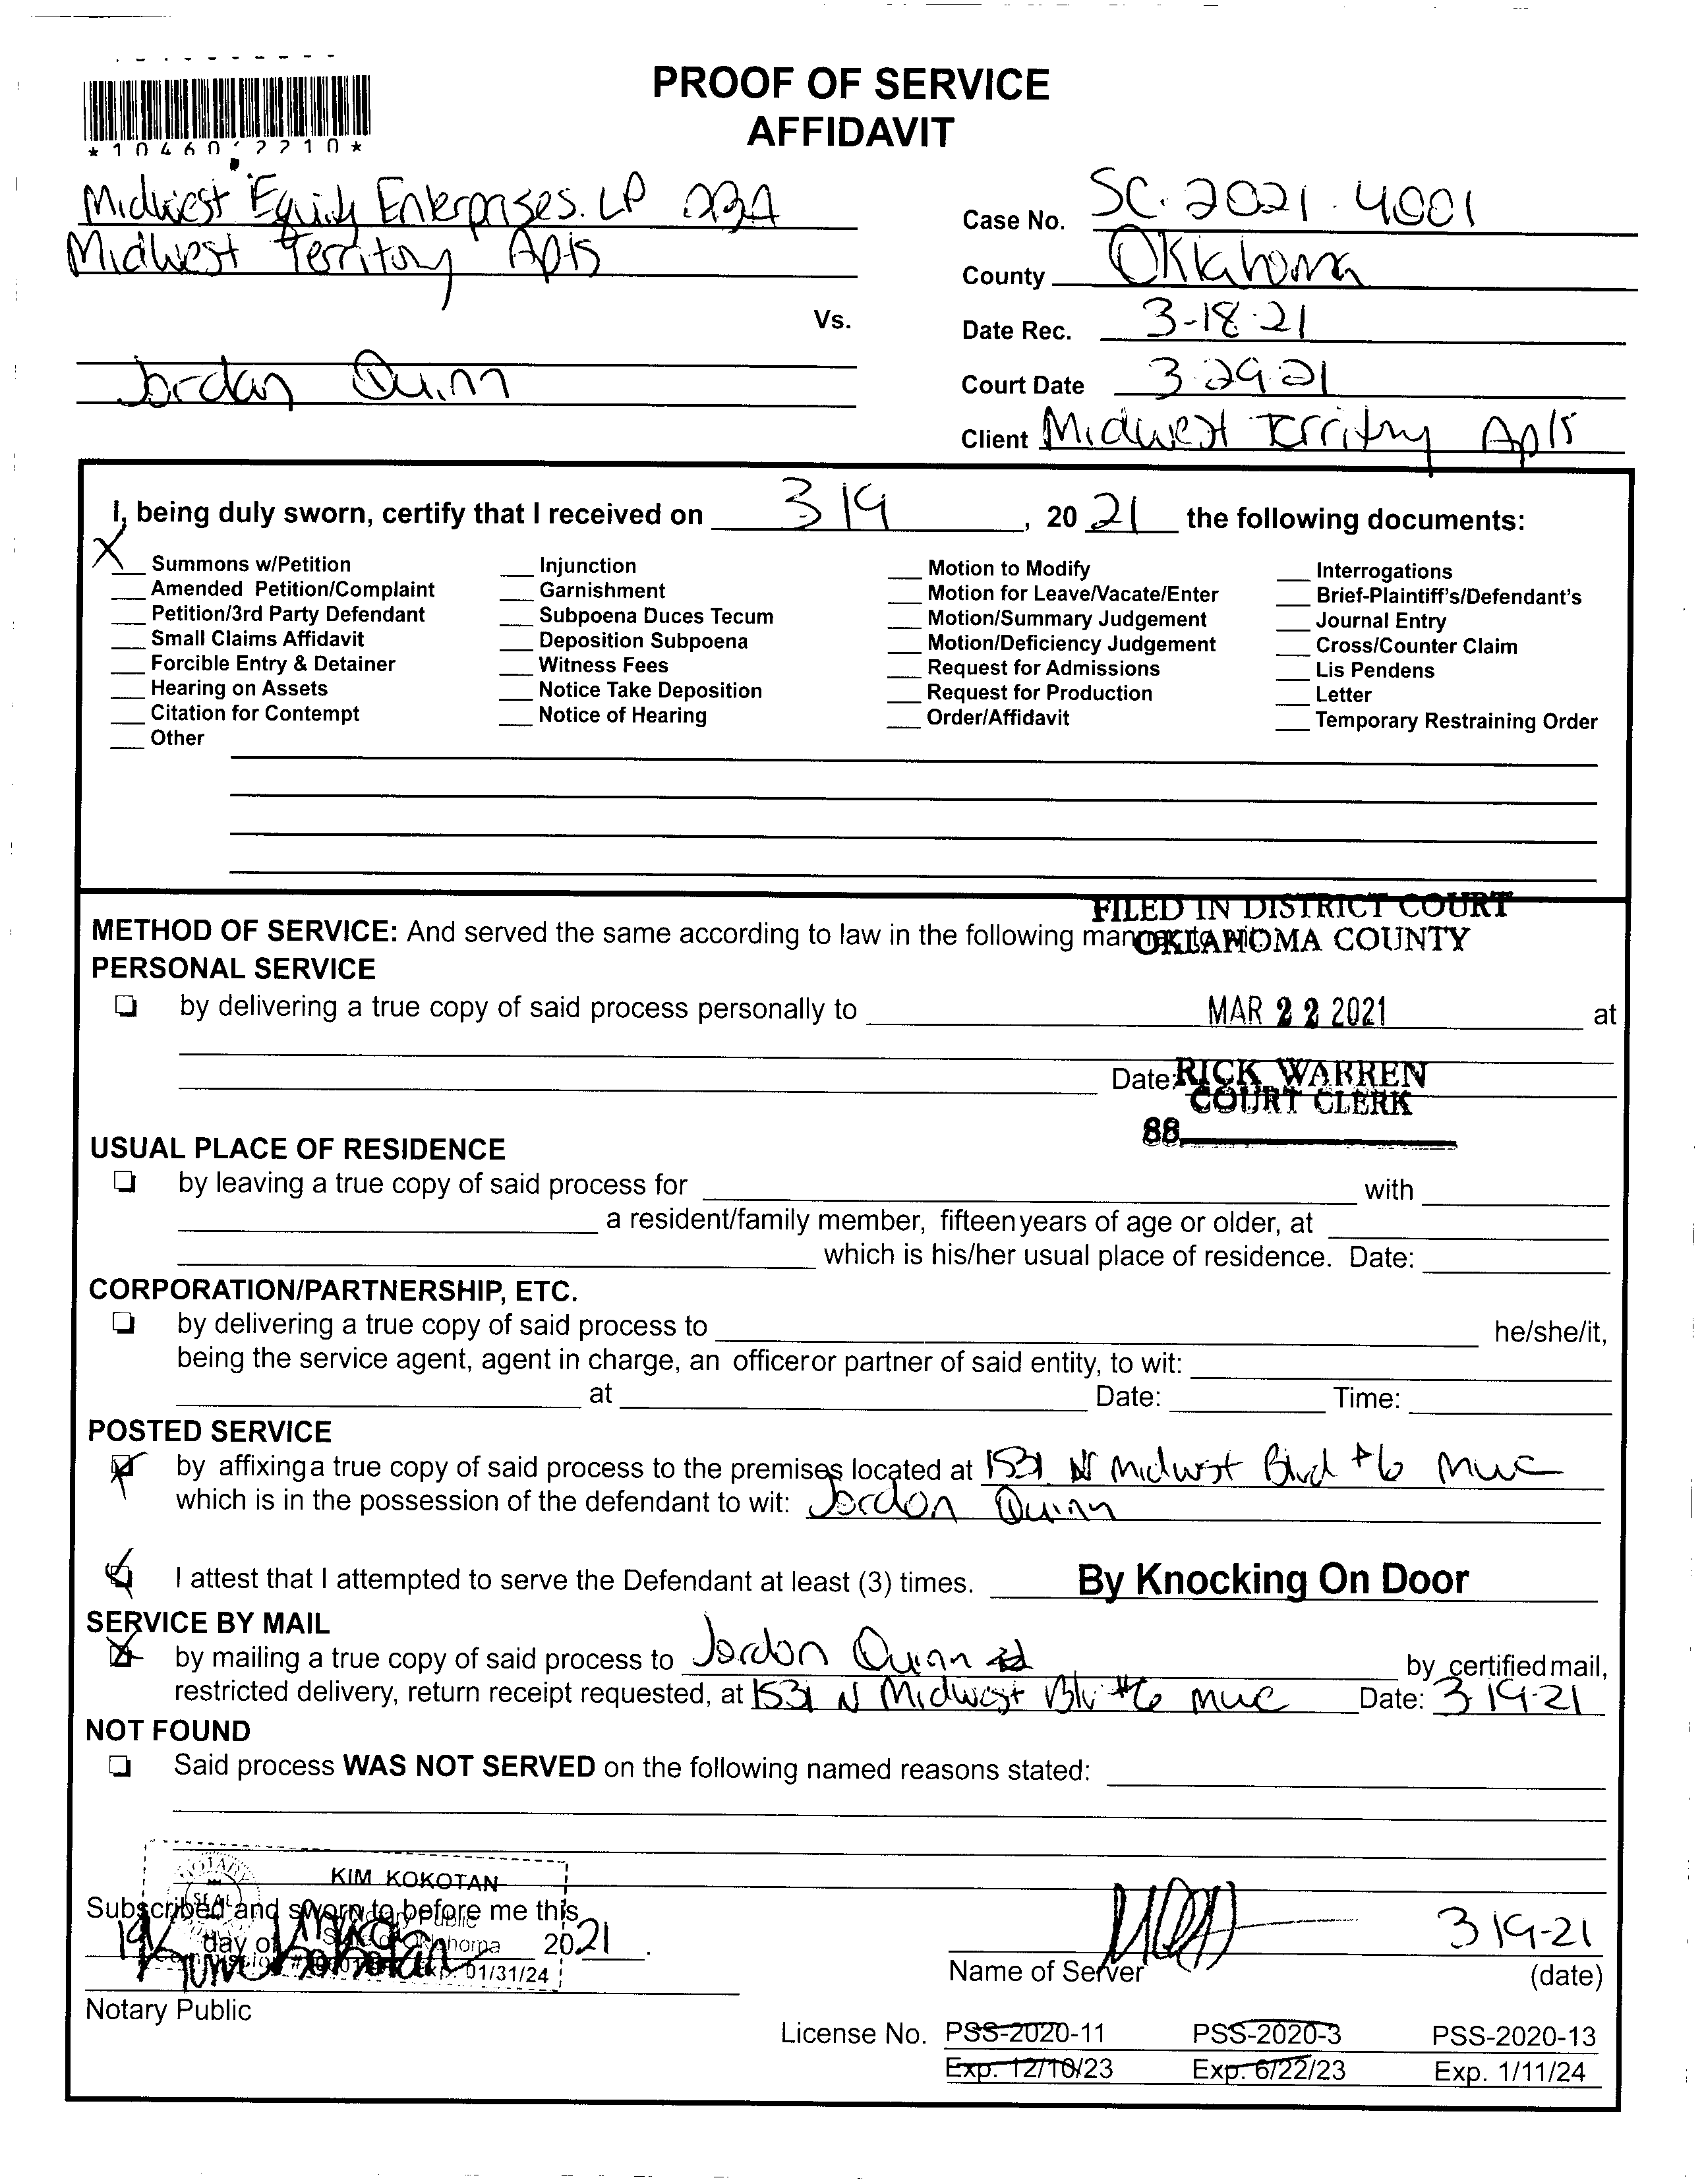 PROOF OF SERVICE
AFFIDAVIT
Midwest Equity Enterprises. LP
Midwest Territory Apts
Vs.
Jordan Quinn
Case No. SC-2021-4001
County Oklahoma
Date Rec. 3-18-21
Court Date 3-29-21
Client Midwest Territry Apts
I, being duly sworn, certify that I received on 3 19, 20 21 the following documents:
X Summons w/Petition
Amended Petition/Complaint
Petition/3rd Party Defendant
Small Claims Affidavit
Forcible Entry & Detainer
Hearing on Assets
Citation for Contempt
Other
Injunction
Garnishment
Subpoena Duces Tecum
Deposition Subpoena
Witness Fees
Notice Take Deposition
Notice of Hearing
Motion to Modify
Motion for Leave/Vacate/Enter
Motion/Summary Judgement
Motion/Deficiency Judgement
Request for Admissions
Request for Production
Order/Affidavit
Interrogations
Brief-Plaintiff's/Defendant's
Journal Entry
Cross/Counter Claim
Lis Pendens
Letter
Temporary Restraining Order
FILED IN DISTRICT COURT
OKLAHOMA COUNTY
MAR 22 2021
RICK WARREN
COURT CLERK
88
METHOD OF SERVICE: And served the same according to law in the following
PERSONAL SERVICE
by delivering a true copy of said process personally to at
Date:
USUAL PLACE OF RESIDENCE
by leaving a true copy of said process for with
a resident/family member, fifteen years of age or older, at
which is his/her usual place of residence. Date:
CORPORATION/PARTNERSHIP, ETC.
by delivering a true copy of said process to he/she/it,
being the service agent, agent in charge, an officer or partner of said entity, to wit:
at Date: Time:
POSTED SERVICE
by affixing a true copy of said process to the premises located at 1531 N Midwst Blvd #6 MWC
which is in the possession of the defendant to wit: Jordon Quinn
I attest that I attempted to serve the Defendant at least (3) times. By Knocking On Door
SERVICE BY MAIL
by mailing a true copy of said process to Jordon Quinn by certified mail,
restricted delivery, return receipt requested, at 1531 N Midwest Blv #6 MWC Date: 3-19-21
NOT FOUND
Said process WAS NOT SERVED on the following named reasons stated:
KIM KOKOTAN
Subscribed and sworn to before me this
19 day of 2021.
01/31/24
Notary Public
3 19-21
Name of Server (date)
License No. PSS-2020-11 PSS-2020-3 PSS-2020-13
Exp. 12/10/23 Exp. 6/22/23 Exp. 1/11/24